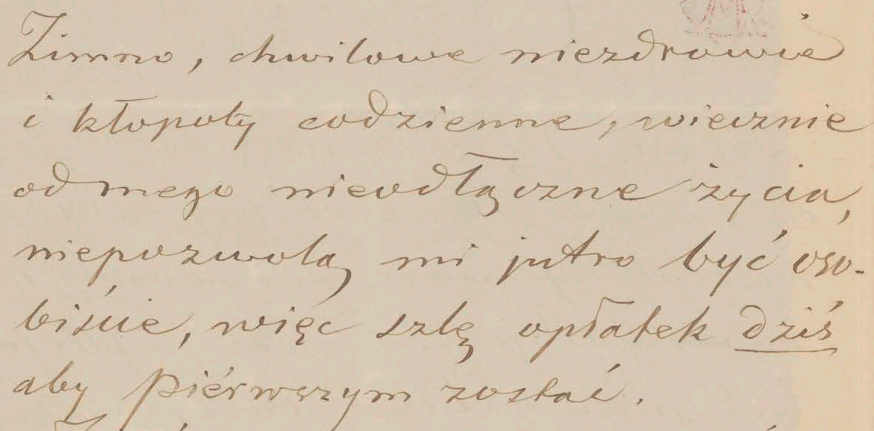 Zimno, chwilowe niezdrowie
i kłopoty codzienne, wiecznie
od mego nieodłączne życia,
niepozwolą mi jutro być oso-
biście, więc szlę opłatek dziś
aby piérwszym zostać.